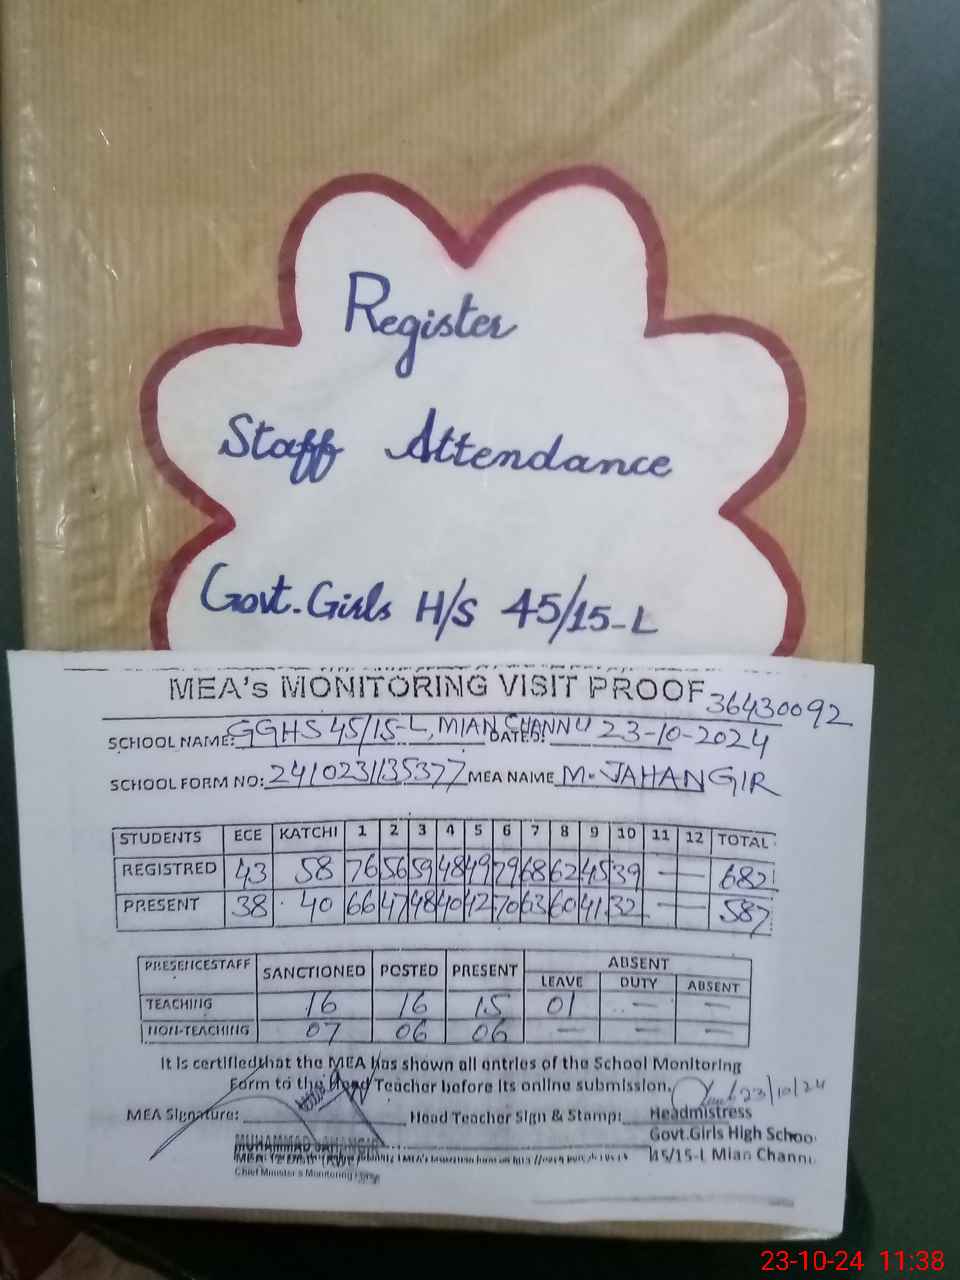 Register
Staff Attendance
Govt. Girls H/S 45/15-L
MEA's MONITORING VISIT PROOF 36430092
SCHOOL NAME: GGHS 45/15-L, MIAN CHANNU DATED: 23-10-2024
SCHOOL FORM NO: 2410231135377 MEA NAME M. JAHANGIR
STUDENTS ECE KATCHI 1 2 3 4 5 6 7 8 9 10 11 12 TOTAL
REGISTRED 43 58 76 56 59 48 49 79 68 62 45 39 — — 682
PRESENT 38 40 66 47 48 40 42 70 63 60 41 32 — — 587
PRESENCESTAFF SANCTIONED POSTED PRESENT ABSENT
LEAVE DUTY ABSENT
TEACHING 16 16 15 01 — —
NON-TEACHING 07 06 06 — — —
It is certified that the MEA has shown all entries of the School Monitoring
Form to the Head Teacher before its online submission.
23/10/24
MEA Signature: Head Teacher Sign & Stamp: Headmistress
Govt.Girls High Schoo
45/15-L Mian Channu
MUHAMMAD JAHANGIR
Chief Minister's Monitoring
23-10-24 11:38